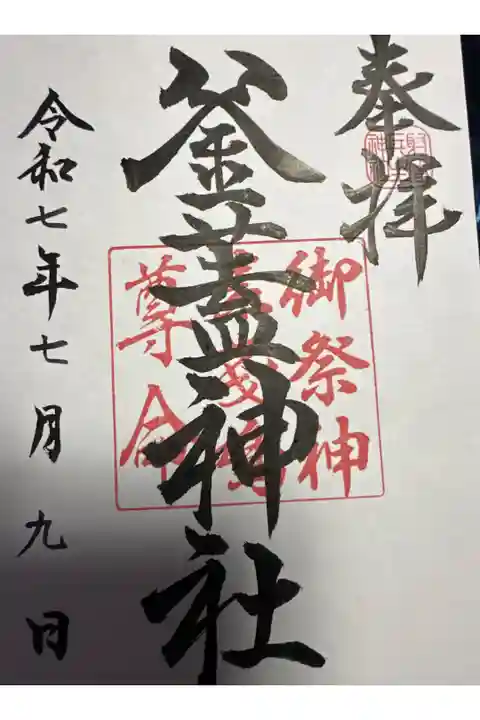 奉拝
釜蓋神社
御祭神
尊命
令和七年七月九日